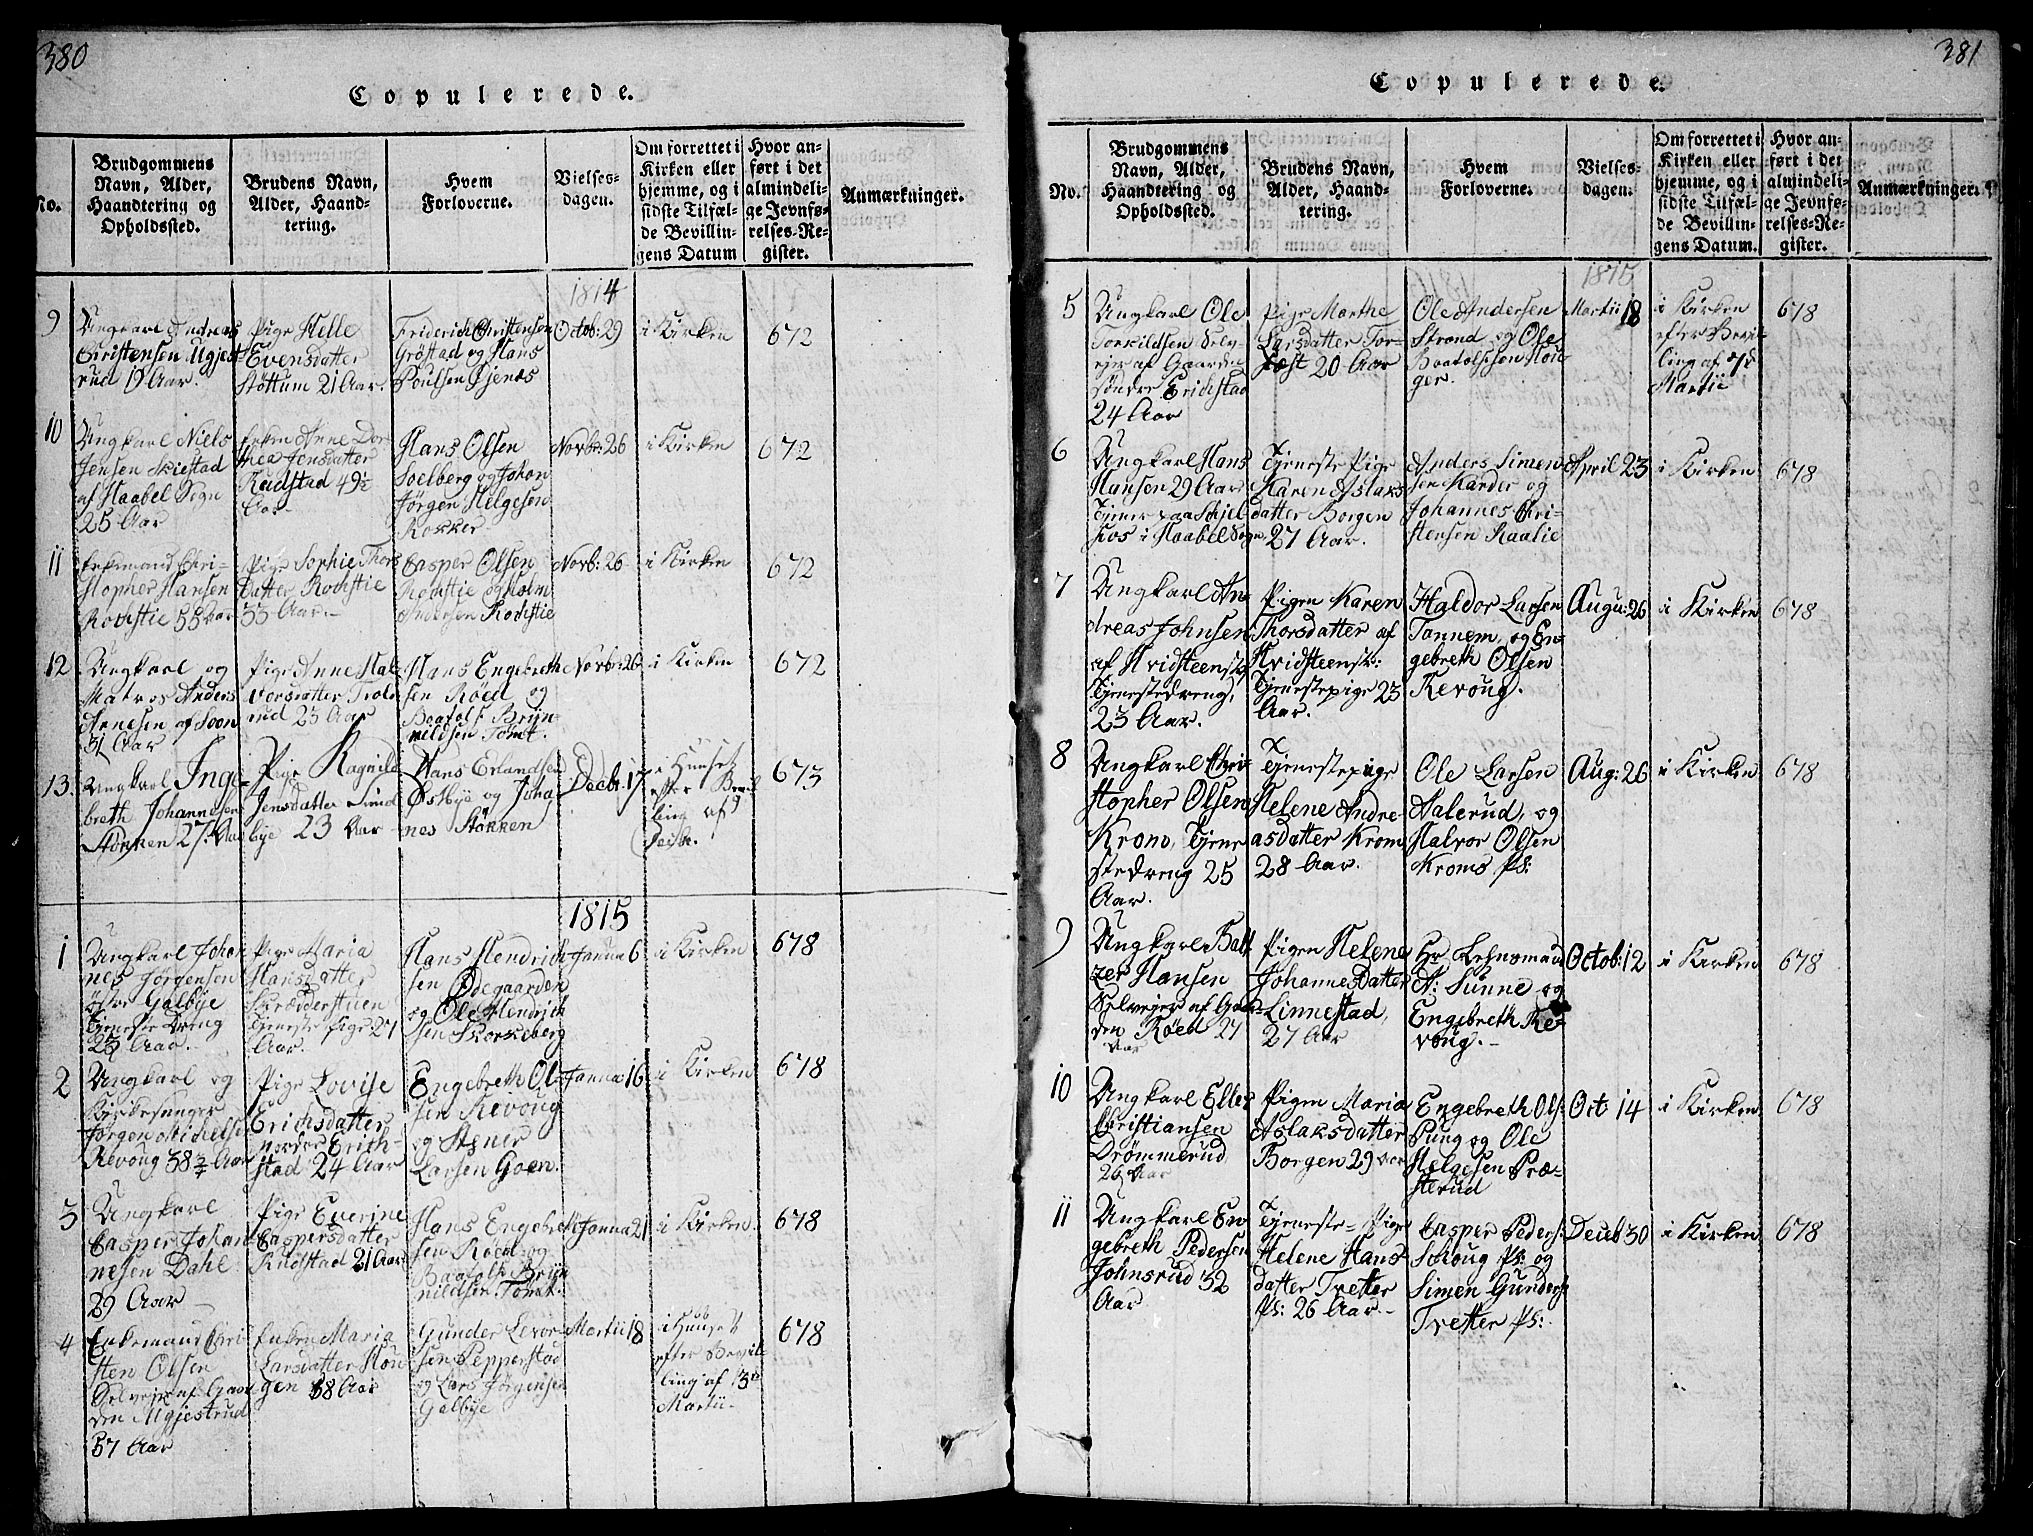 380
Copulerede.
No.
Brudgommens
Navn, Alder,
Haandtering og
Opholdssted.
Brudens Navn,
Alder, Haand-
tering.
Hvem
Forloverne.
Vielses-
dagen.
Om forrettet i
Kirken eller
hjemme, og i
sidste Tilfæl-
de Bevillin-
gens Datum
Hvor an-
ført i det
almindeli-
ge Jevnfø-
relses-Re-
gister.
Anmærkninger.
1814
9
Ungkarl Andreas
Christensen Ugjest
rud 19 Aar.
Pige Helle
Evensdatter
Støttum 21 Aar.
Friderich Christensen
Grøstad og Hans
Poulsen Ejenæs
Octob: 29
i Kirken
672
10
Ungkarl Niels
Jensen Skiestad
af Haabel Sogn
25 Aar
Enken Anne Dor
thea Jensdatter
Rudstad 49½
Aar
Hans Olsen
Soelberg og Johan
Jørgen Helgesen
Rokker
Novbr: 26
i Kirken
672
11
Enkemand Chri-
stopher Hansen
Rodstie 55 Aar
Pige Sophie Thors
Datter Rodstie
33 Aar
Casper Olsen
Rodstie og Holm
Andersen Rodstie
Novb: 26
i Kirken
672
12
Ungkarl og
Matros Anders
Arnesen af Soon
31 Aar
Pige Anne Hal-
vorsdatter Trole
rud 23 Aar
Hans Engebreth
sen Røed og
Baatolf Bryn-
nildsen Tomt.
Novbr: 26
i Kirken
672
13.
Ungkarl Inge-
breth Johannesen
Stønnen 27. Aar
Pige Ragnild
Jensdatter Sund
bye 23 Aar
Hans Erlandsen
Østbye og Joha
nes Stønnen
Decbr. 17
i Huuset
efter Bevil
ling af 9
Decbr.
673
1815
1
Ungkarl Johan
nes Jørgensen
østre Galbye
Tjeneste Dreng
23 Aar.
Pige Maria
Hansdatter
Skrædderstuen
Tjeneste Pige 27
Aar.
Hans Hendrich
sen Ødegaarden
og Ole Hendrich
sen Skorkeberg
Janua 6
i Kirken
678
2
Ungkarl og
Kirkesanger
Jørgen Michelsen
Revoug 38¾ Aar
Pige Lovise
Erichsdatter
nordre Erich-
stad 24 Aar
Engebreth Ol-
sen Revoug
og Stener
Larsen Goen.
Janna: 16
i Kirken
678
3
Ungkarl
Casper Johan
nesen Dahl
29 Aar
Pige Everine
Caspersdatter
Rudstad 21 Aar
Hans Engebreth
sen Røed og
Baatolf Bryn
nildsen Tomt.
Janna 21
i Kirken
678
4
Enkemand Chri
sten Olsen
Selveier af Gaar
den Ugjestrud
57 Aar
Enken Maria
Larsdatter Hou
gen 38 Aar
Gunder Levor-
sen Pepperstad
og Lars Jørgensen
Galbye
Martii 18
i Huuset
efter Bevil-
ling af 13de
Martii.
678
381
Copulerede.
No.
Brudgommens
Navn, Alder,
Haandtering og
Opholdssted.
Brudens Navn,
Alder, Haand-
tering.
Hvem
Forloverne.
Vielses-
dagen.
Om forrettet i
Kirken eller
hjemme, og i
sidste Tilfæl-
de Bevillin-
gens Datum.
Hvor an-
ført i det
almindeli-
ge Jevnfø-
relses-Re-
gister.
Anmærkninger.
1815
5
Ungkarl Ole
Torkildsen Selv-
ejer af Gaarden
søndre Erichstad
24 Aar
Pige Marthe
Larsdatter Tor-
fæst 20 Aar
Ole Andersen
Strand og Ole
Baatolfsen Hou
ger.
Martii 18
i Kirken
efter Bevil-
ling af 7de
Martii
678
6
Ungkarl Hans
Hansen 29 Aar
Tjener paa Skjel
fos i Haabel Sogn
Tjeneste Pige
Karen Aslaks
datter Borgen
27 Aar.
Anders Simen-
sen Karder og
Johannes Chri-
stensen Kaalie
April 23
i Kirken
678
7
Ungkarl An-
dreas Johnsen
af Hvidsteensk:
Tjenestedreng,
23 Aar.
Pigen Karen
Thorsdatter af
Hvidsteensk:
Tjenestepige 23
Aar.
Haldor Larsen
Tannem, og En-
gebreth Olsen
Revoug.
Augu: 26
i Kirken
678
8
Ungkarl Chri-
stopher Olsen
Krom, Tjene
stedreng 25
Aar.
Tjenestepige
Helene Andre-
asdatter Krom
28 Aar.
Ole Larsen
Aalerud, og
Halvor Olsen
Kroms Pl:
Aug: 26
i Kirken
678
9
Ungkarl Balt
zer Hansen
Selvejer af Gaar-
den Røed 27
Aar
Pigen Helene
Johannesdatter
Linnestad,
27 Aar
Hr Lehnsmand
A: Sunne og
Engebreth Re-
voug.
Octob: 12
i Kirken
678
10
Ungkarl Eller
Christiansen
Drømmerud
26 Aar
Pigen Maria
Aslaksdatter
Borgen 29 Aar
Engebreth Ols:
Pung og Ole
Helgesen Præ-
sterud
Oct: 14
i Kirken
678
11
Ungkarl En
gebreth Pedersen
Johnsrud 32
Aar
Tjeneste-Pige
Helene Hans-
datter Tvetter
Pl: 26 Aar
Casper Peders:
Schoug Pl: og
Simen Gunders:
Tvetter Pl:
Deceb 30
i Kirken
678